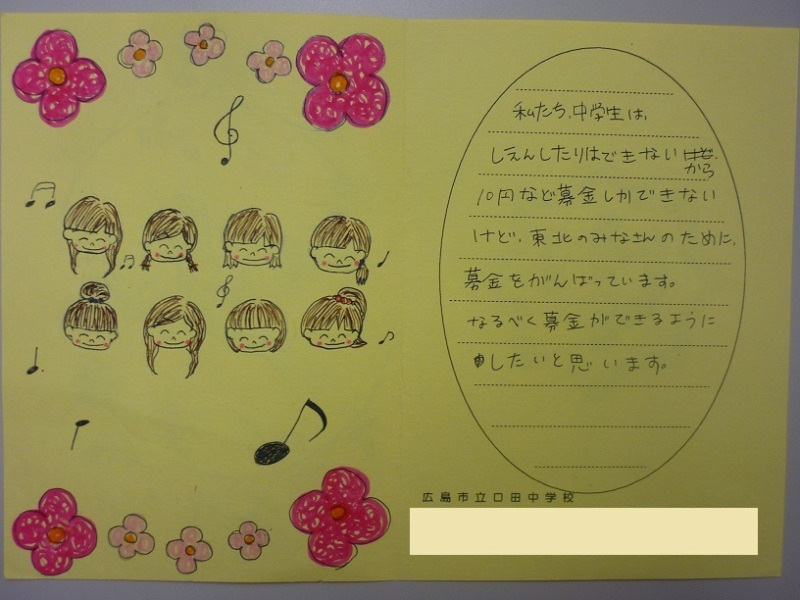 私たち、中学生は、
しえんしたりはできないから
10円など募金しかできない
けど、東北のみなさんのために、
募金をがんばっています。
なるべく募金ができるように
したいと思います。
広島市立口田中学校